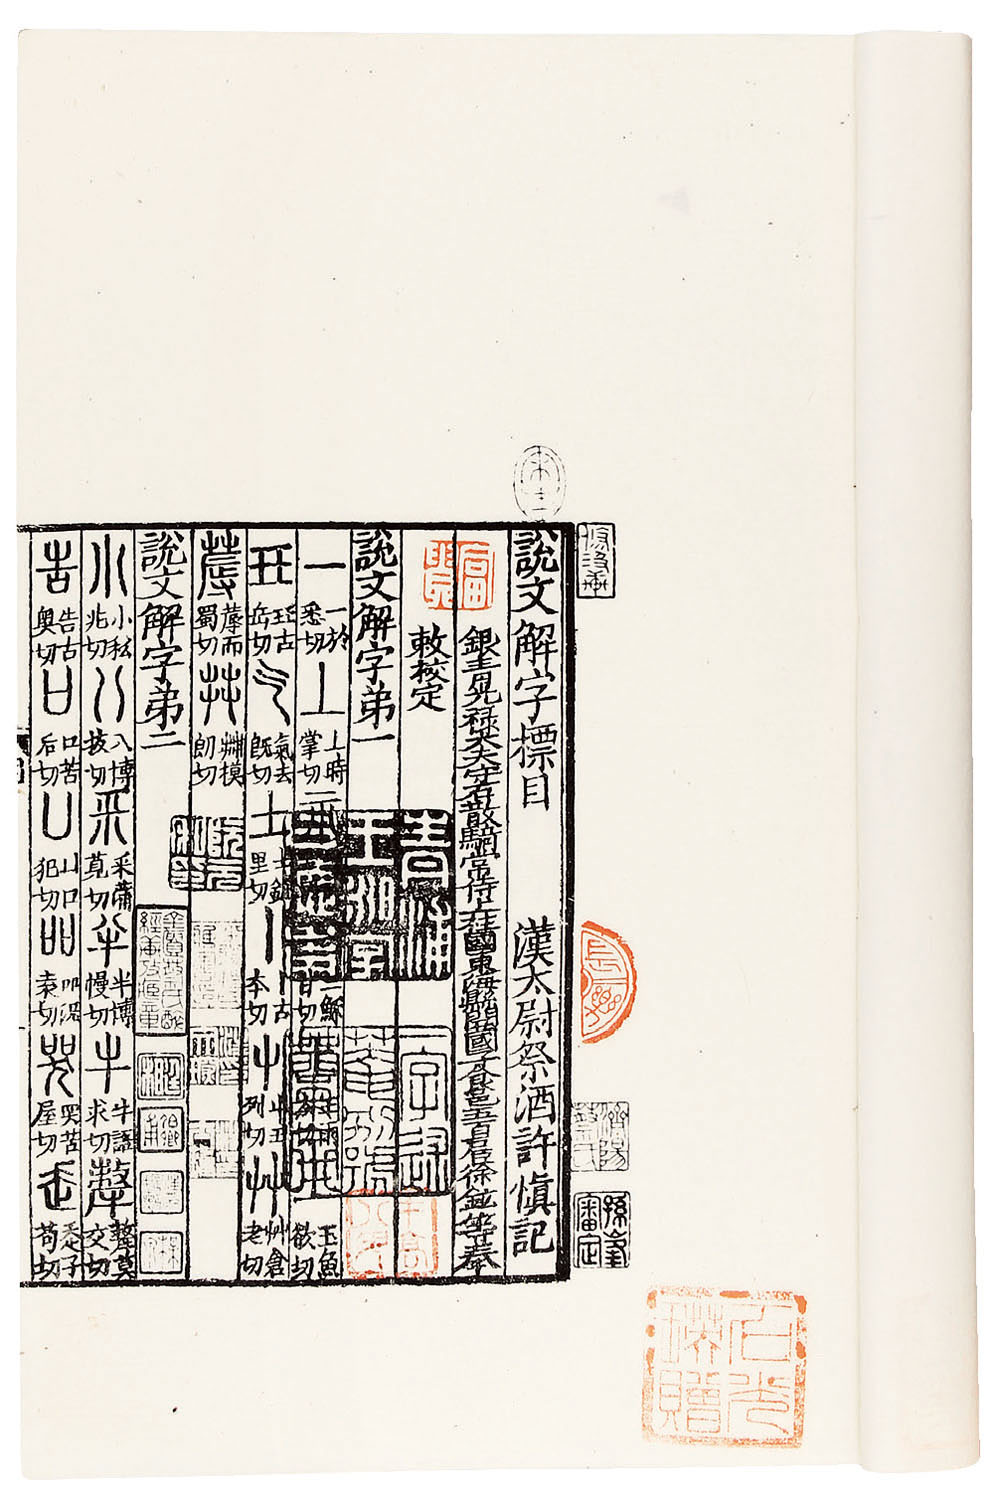 說文解字標目 漢太尉祭酒許慎記
銀青光祿大夫守右散騎常侍上柱國東海縣開國子食邑五百戶臣徐鉉等奉
敕校定
說文解字弟一
一 一於悉切 丄 上時掌切 穌甘切 玉魚欲切
玨 玨古岳切 气 氣去既切 士 士鉏里切 丨 丨古本切 屮 屮丑列切 艸 艸倉老切
蓐 蓐而蜀切 茻 茻模朗切
說文解字弟二
小 小私兆切 八 八博拔切 釆 釆蒲莧切 半 半博慢切 牛 牛語求切 犛 犛莫交切
告 告古奧切 口 口苦后切 凵 凵口犯切 吅 吅況袁切 哭 哭苦屋切 走 走子苟切
石光瑛贈